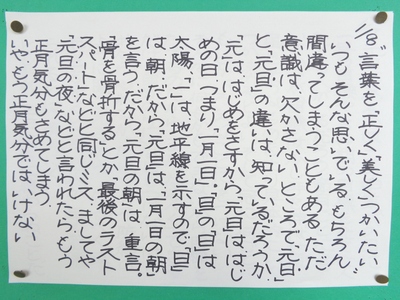 1/8 "言葉を「正しく」「美しく」つかいたい
いつもそんな思いでいるもちろん
間違ってしまうこともある。ただ
意識は、欠かさない。ところで「元日」
と「元旦」の違いは、知っているだろうか。
「元」は、はじめをさすから「元日」は、はじ
めの日つまり「一月一日」。「旦」の「日」は
太陽、「一」は、地平線を示すので「旦」
は、朝。だから、「元旦」は「一月一日の朝」
を言う。だから、「元旦の朝」は、重言。
「骨を骨折する」とか、「最後のラスト
スパート」などと同じミス。ましてや
「元旦の夜」などと言われたらもう
正月気分もさめてしまう。
いやもう正月気分では、いけない